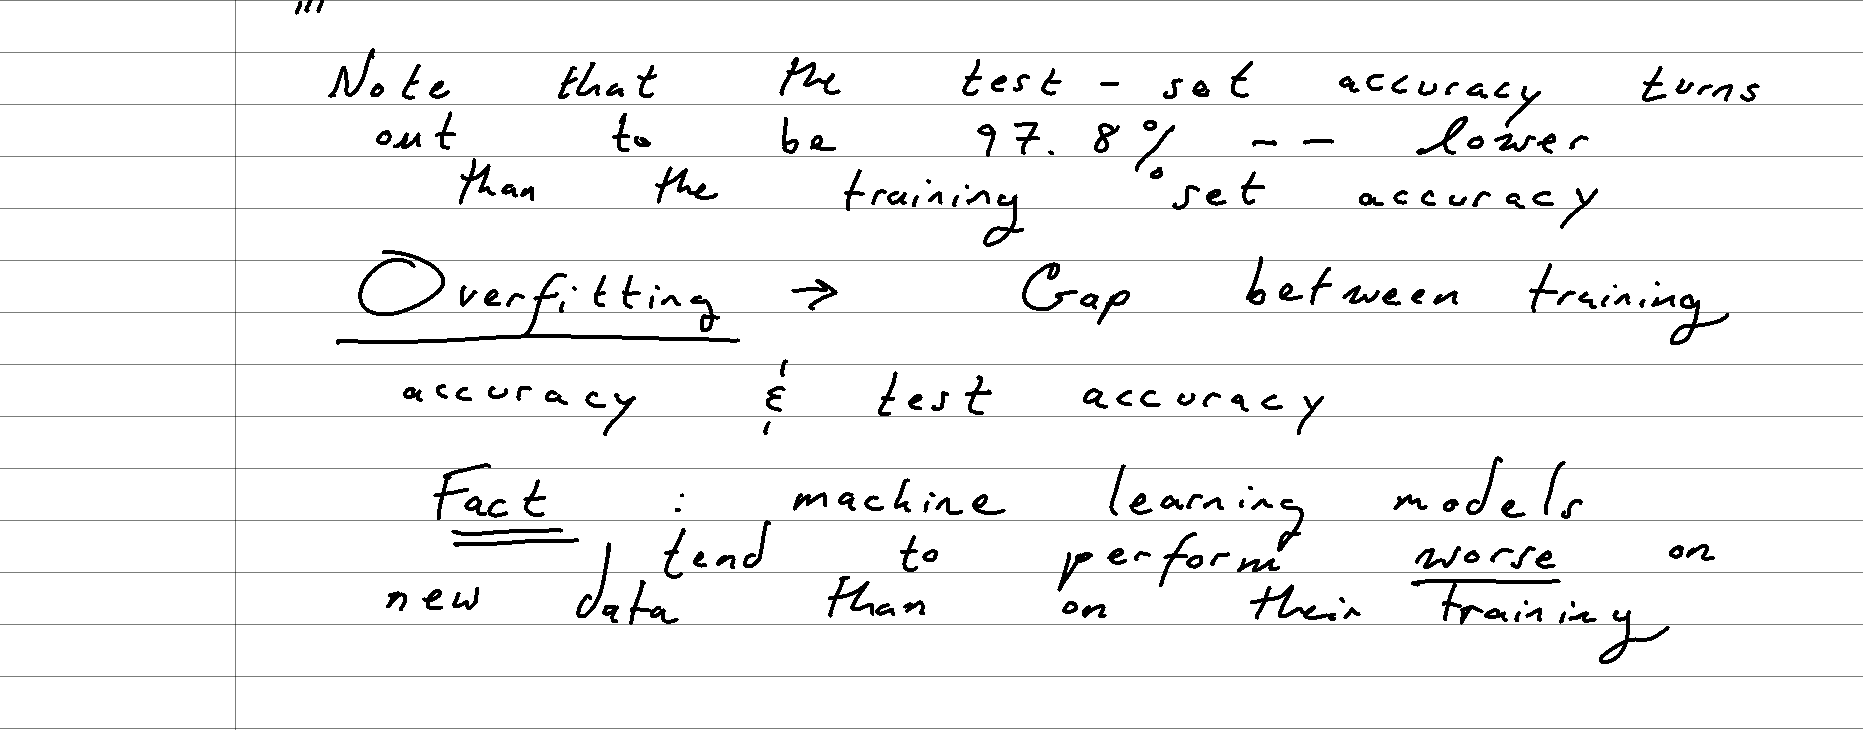 Note that the test - set accuracy turns
out to be 97.8% -- lower
than the training set accuracy
Overfitting → Gap between training
accuracy & test accuracy
Fact : machine learning models
tend to perform worse on
new data than on their training